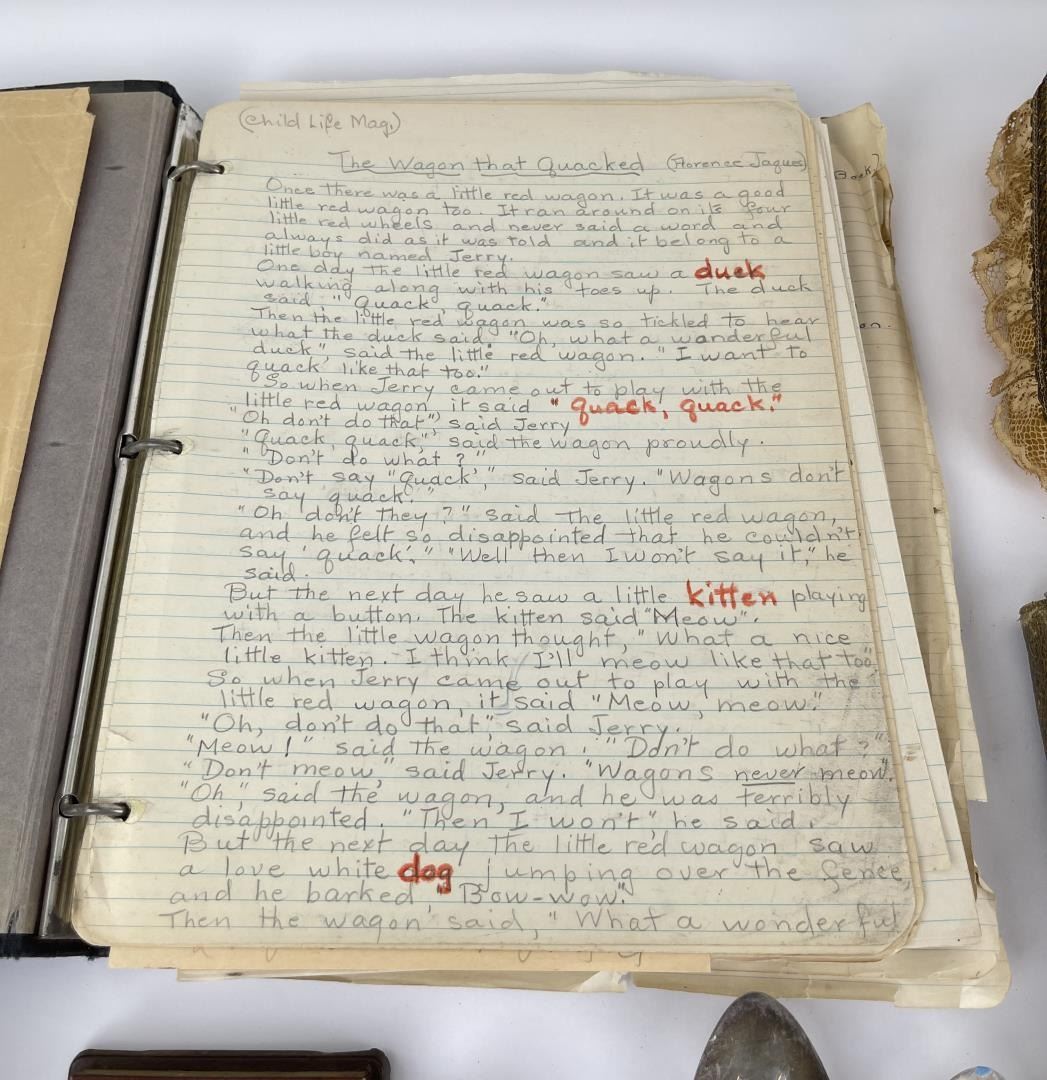 (Child Life Mag.)
The Wagon that Quacked (Florence Jaques)
Once there was a little red wagon. It was a good
little red wagon too. It ran around on its four
little red wheels and never said a word and
always did as it was told and it belong to a
little boy named Jerry.
One day the little red wagon saw a duck
walking along with his toes up. The duck
said, "Quack, quack."
Then the little red wagon was so tickled to hear
what the duck said. "Oh, what a wonderful
duck", said the little red wagon. "I want to
quack like that too."
So when Jerry came out to play with the
little red wagon it said "quack, quack."
"Oh don't do that", said Jerry
"Quack, quack", said the wagon proudly.
"Don't do what?"
"Don't say 'quack'," said Jerry. "Wagons don't
say quack."
"Oh don't they?" said the little red wagon,
and he felt so disappointed that he couldn't
say 'quack'." "Well then I won't say it," he
said.
But the next day he saw a little kitten playing
with a button. The kitten said "Meow".
Then the little wagon thought, "What a nice
little kitten. I think I'll meow like that too"
So when Jerry came out to play with the
little red wagon, it said "Meow, meow."
"Oh, don't do that", said Jerry.
"Meow!" said the wagon. "Don't do what?"
"Don't meow," said Jerry. "Wagons never meow".
"Oh," said the wagon, and he was terribly
disappointed. "Then I won't", he said.
But the next day the little red wagon saw
a love white dog jumping over the fence,
and he barked, "Bow-wow."
Then the wagon said, "What a wonderful